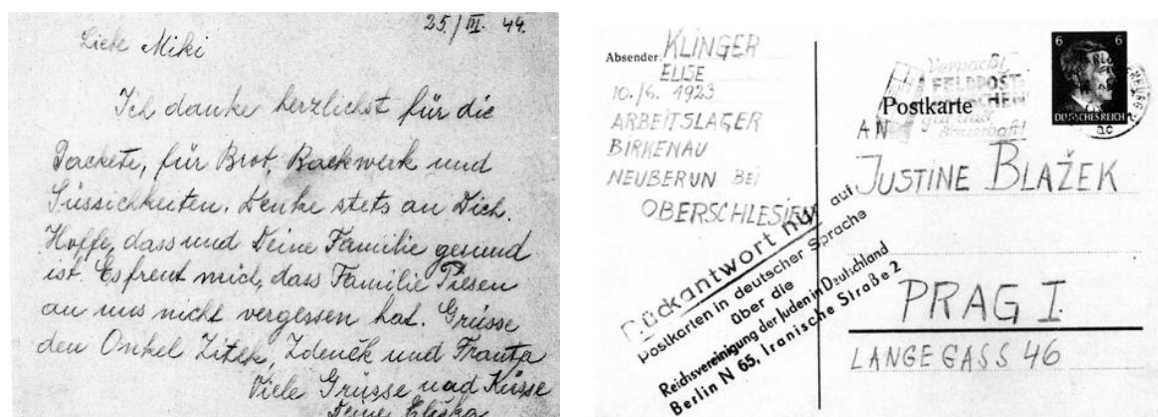 25./III. 44.
Liebe Miki
Ich danke herzlichst für die
Packete, für Brot, Backwerk und
Süssichkeiten. Denke stets an Dich.
Hoffe, dass und Deine Familie gesund
ist. Es freut mich, dass Familie Piesen
an uns nicht vergessen hat. Grüsse
den Onkel Zitek, Zdeněk und Franta
Viele Grüsse und Küsse
Deine Eliška
Absender: KLINGER
ELISE
10./6. 1923
ARBEITSLAGER
BIRKENAU
NEUBERUN BEI
OBERSCHLESIEN
Rückantwort nur auf
Postkarten in deutscher Sprache
über die
Reichsvereinigung der Juden in Deutschland
Berlin N 65, Iranische Straße 2
6 6
DEUTSCHES REICH
Verpackt
FELDPOST-
gut und
dauerhaft!
Postkarte
AN
JUSTINE BLAŽEK
PRAG I.
LANGEGASS 46